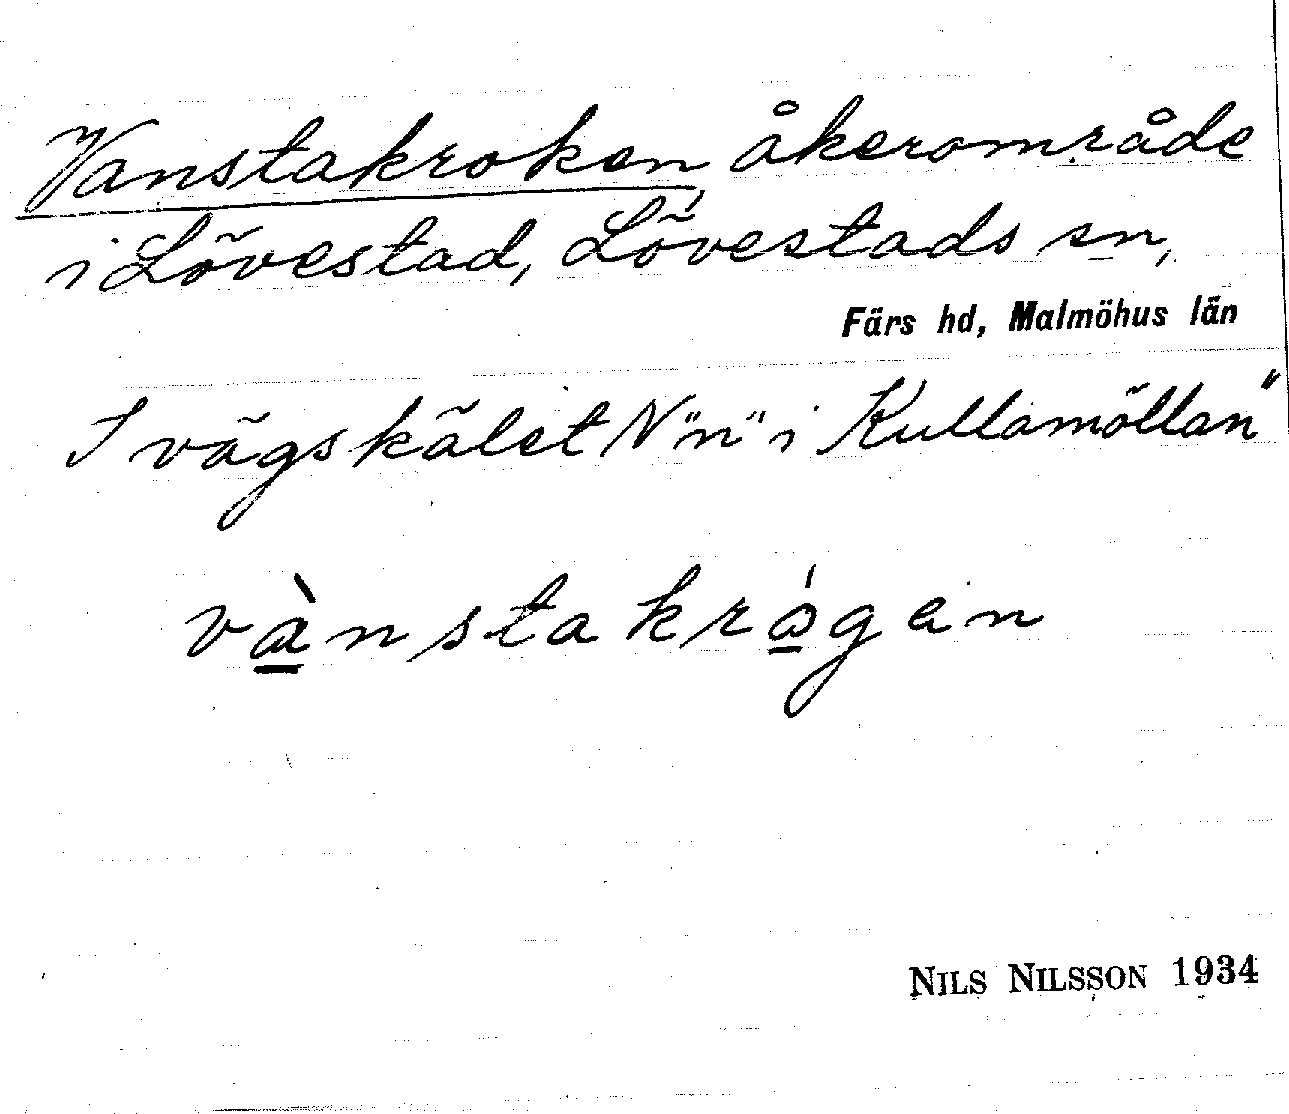 Vanstakroken, åkerområde
i Lövestad, Lövestads sn,
Färs hd, Malmöhus län
I vägskälet N "n" i Kullamöllan"
vànstakrógen
NILS NILSSON 1934